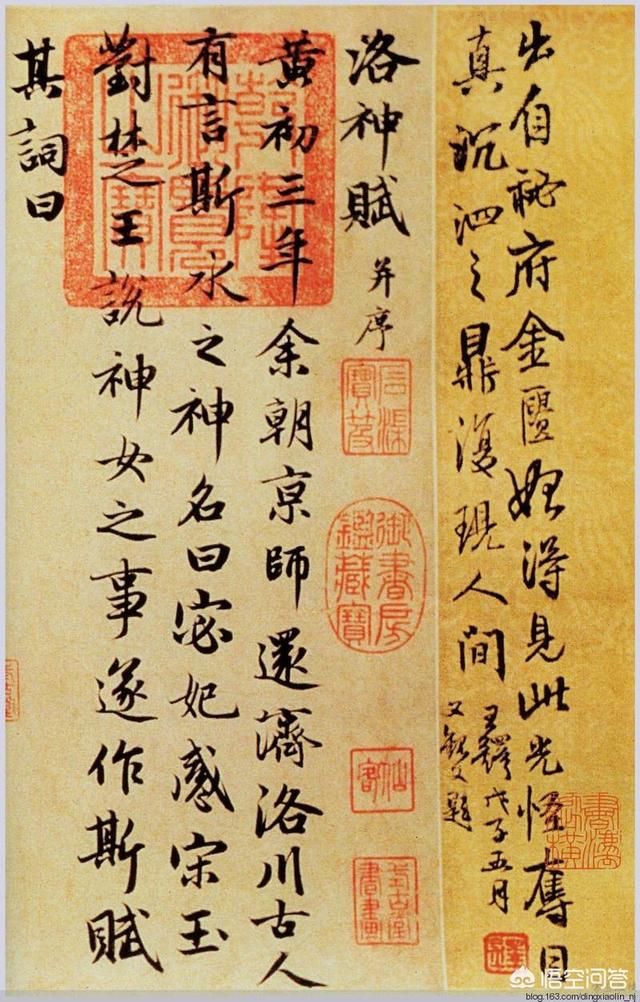 出自秘府金匱始得見此光怪奪目
真沉泗之鼎復現人間
王鐸戊子五月
又題
洛神賦 并序
石渠寶笈
御書房鑑藏寶
黄初三年余朝京師還濟洛川古人
有言斯水之神名曰宓妃感宋玉
對楚王說神女之事遂作斯賦
其詞曰
乾隆御覽之寶
悟空问答
blog.163.com/dingxiaolin_nj